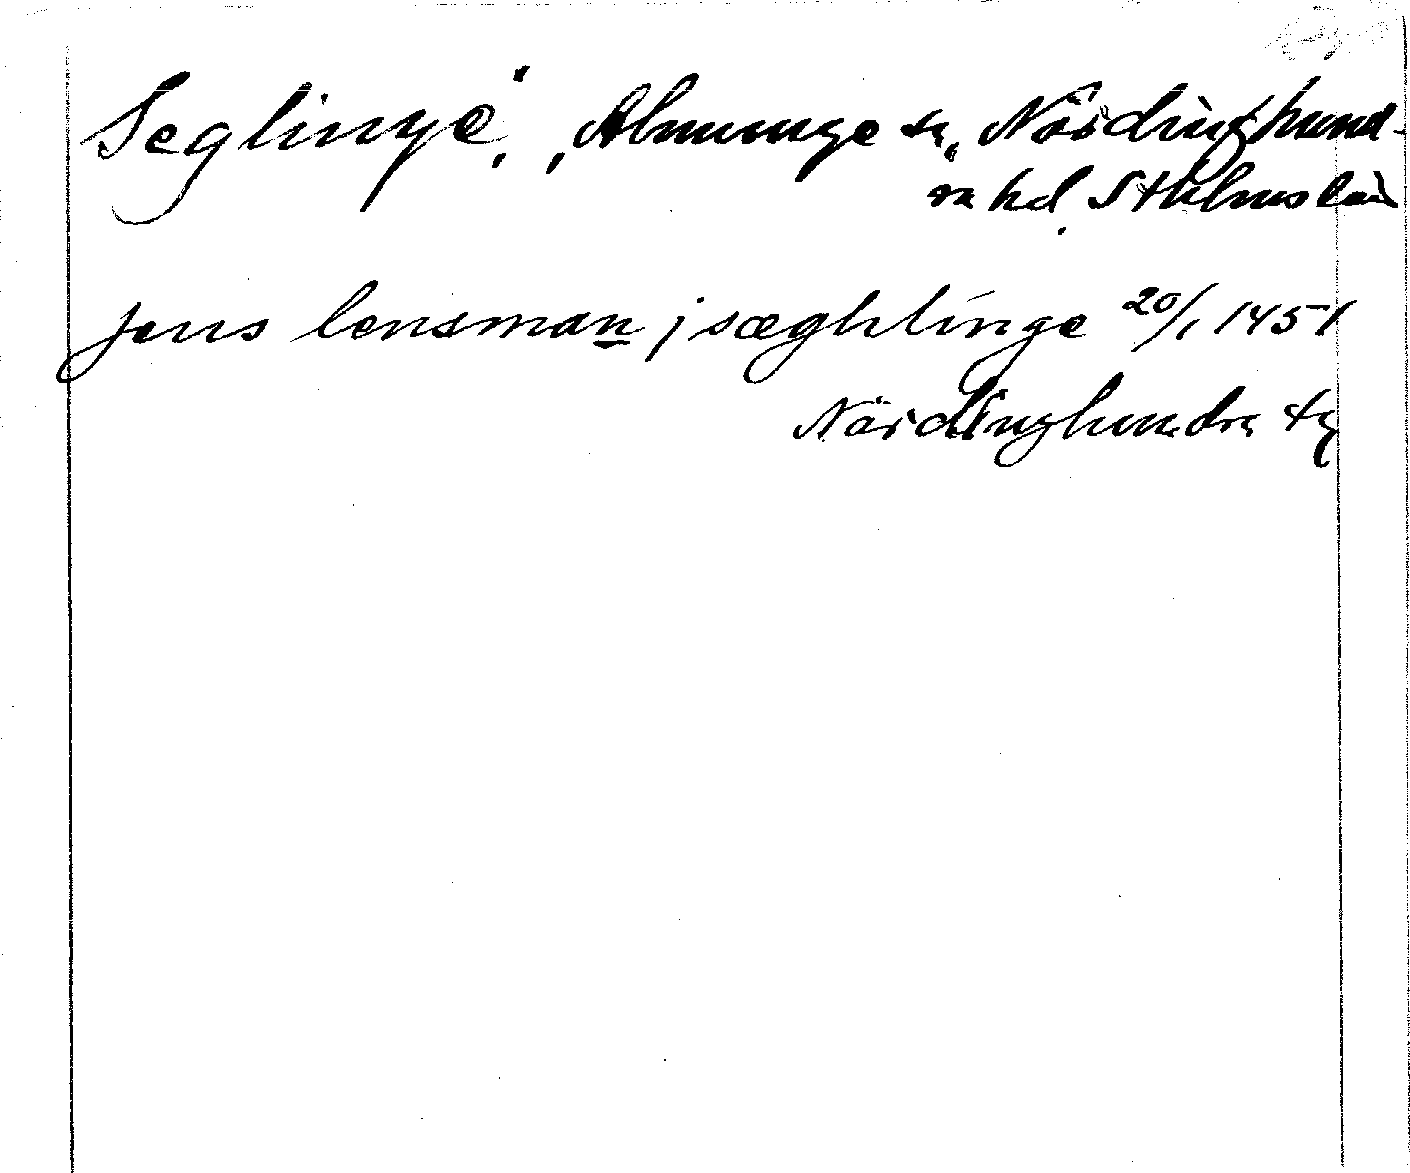 Seglinge, Almunge sn, Närdinghund-
ra hd, Sthlms län
jens lensman j sæghlinge 20/1 1451
Närdinghundra tg